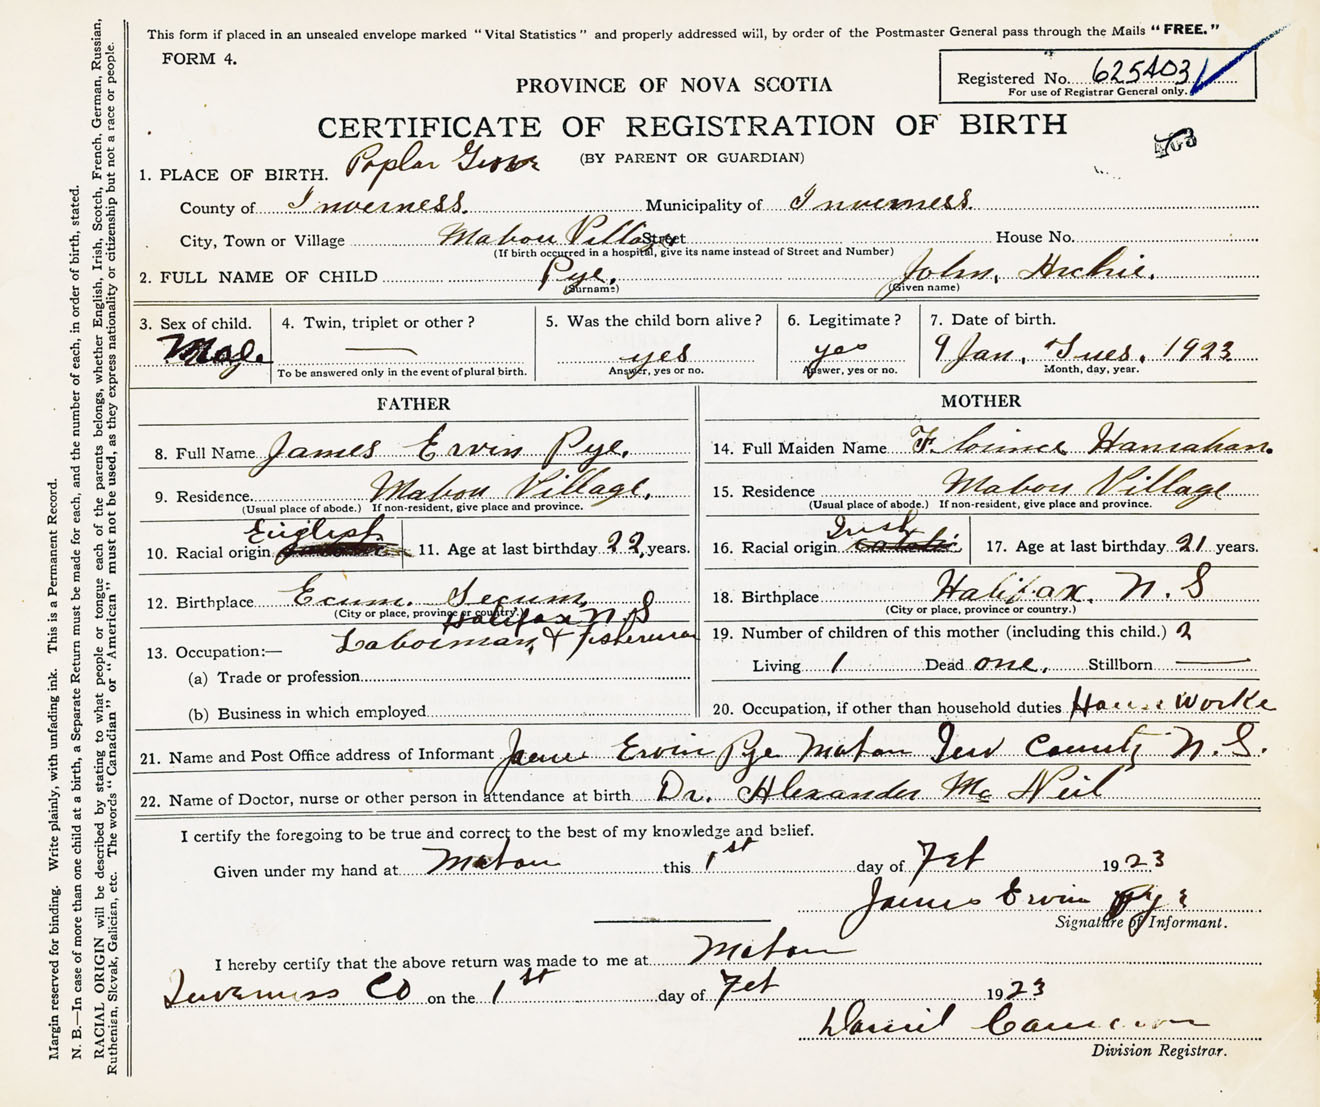 This form if placed in an unsealed envelope marked "Vital Statistics" and properly addressed will, by order of the Postmaster General pass through the Mails "FREE."
FORM 4.
Registered No. 625403
For use of Registrar General only.
PROVINCE OF NOVA SCOTIA
CERTIFICATE OF REGISTRATION OF BIRTH
403
(BY PARENT OR GUARDIAN)
1. PLACE OF BIRTH. Poplar Grove
County of Inverness Municipality of Inverness
City, Town or Village Mabou Village Street House No.
(If birth occurred in a hospital, give its name instead of Street and Number)
2. FULL NAME OF CHILD Pye, John, Archie,
(Surname) (Given name)
3. Sex of child. 4. Twin, triplet or other? 5. Was the child born alive? 6. Legitimate? 7. Date of birth.
— yes yes 9 Jan, Tues. 1923
To be answered only in the event of plural birth. Answer, yes or no. Answer, yes or no. Month, day, year.
FATHER
8. Full Name James Ervin Pye,
9. Residence Mabou Village,
(Usual place of abode.) If non-resident, give place and province.
10. Racial origin English 11. Age at last birthday 22, years.
12. Birthplace Ecum. Secum,
(City or place, province or country.) Halifax N S
13. Occupation:— Laborman, & fisherman
(a) Trade or profession
(b) Business in which employed
MOTHER
14. Full Maiden Name Hanrahan.
15. Residence Mabou Village
(Usual place of abode.) If non-resident, give place and province.
16. Racial origin Irish 17. Age at last birthday 21 years.
18. Birthplace Halifax, N. S
(City or place, province or country.)
19. Number of children of this mother (including this child.) 2
Living 1 Dead one, Stillborn —
20. Occupation, if other than household duties House Worke
21. Name and Post Office address of Informant James Ervin Pye Mabou Inv County N. S.
22. Name of Doctor, nurse or other person in attendance at birth Dr. Alexander Mc Neil
I certify the foregoing to be true and correct to the best of my knowledge and belief.
Given under my hand at Mabou this 1st day of Feb 1923
James Ervin Pye
Signature of Informant.
I hereby certify that the above return was made to me at Mabou
Inverness CO on the 1st day of Feb 1923
Daniel Cameron
Division Registrar.
Margin reserved for binding. Write plainly, with unfading ink. This is a Permanent Record.
N. B.—In case of more than one child at a birth, a Separate Return must be made for each, and the number of each, in order of birth, stated.
RACIAL ORIGIN will be described by stating to what people or tongue each of the parents belongs, whether English, Irish, Scotch, French, German, Russian,
Ruthenian, Slovak, Galician, etc. The words "Canadian" or "American" must not be used, as they express nationality or citizenship but not a race or people.